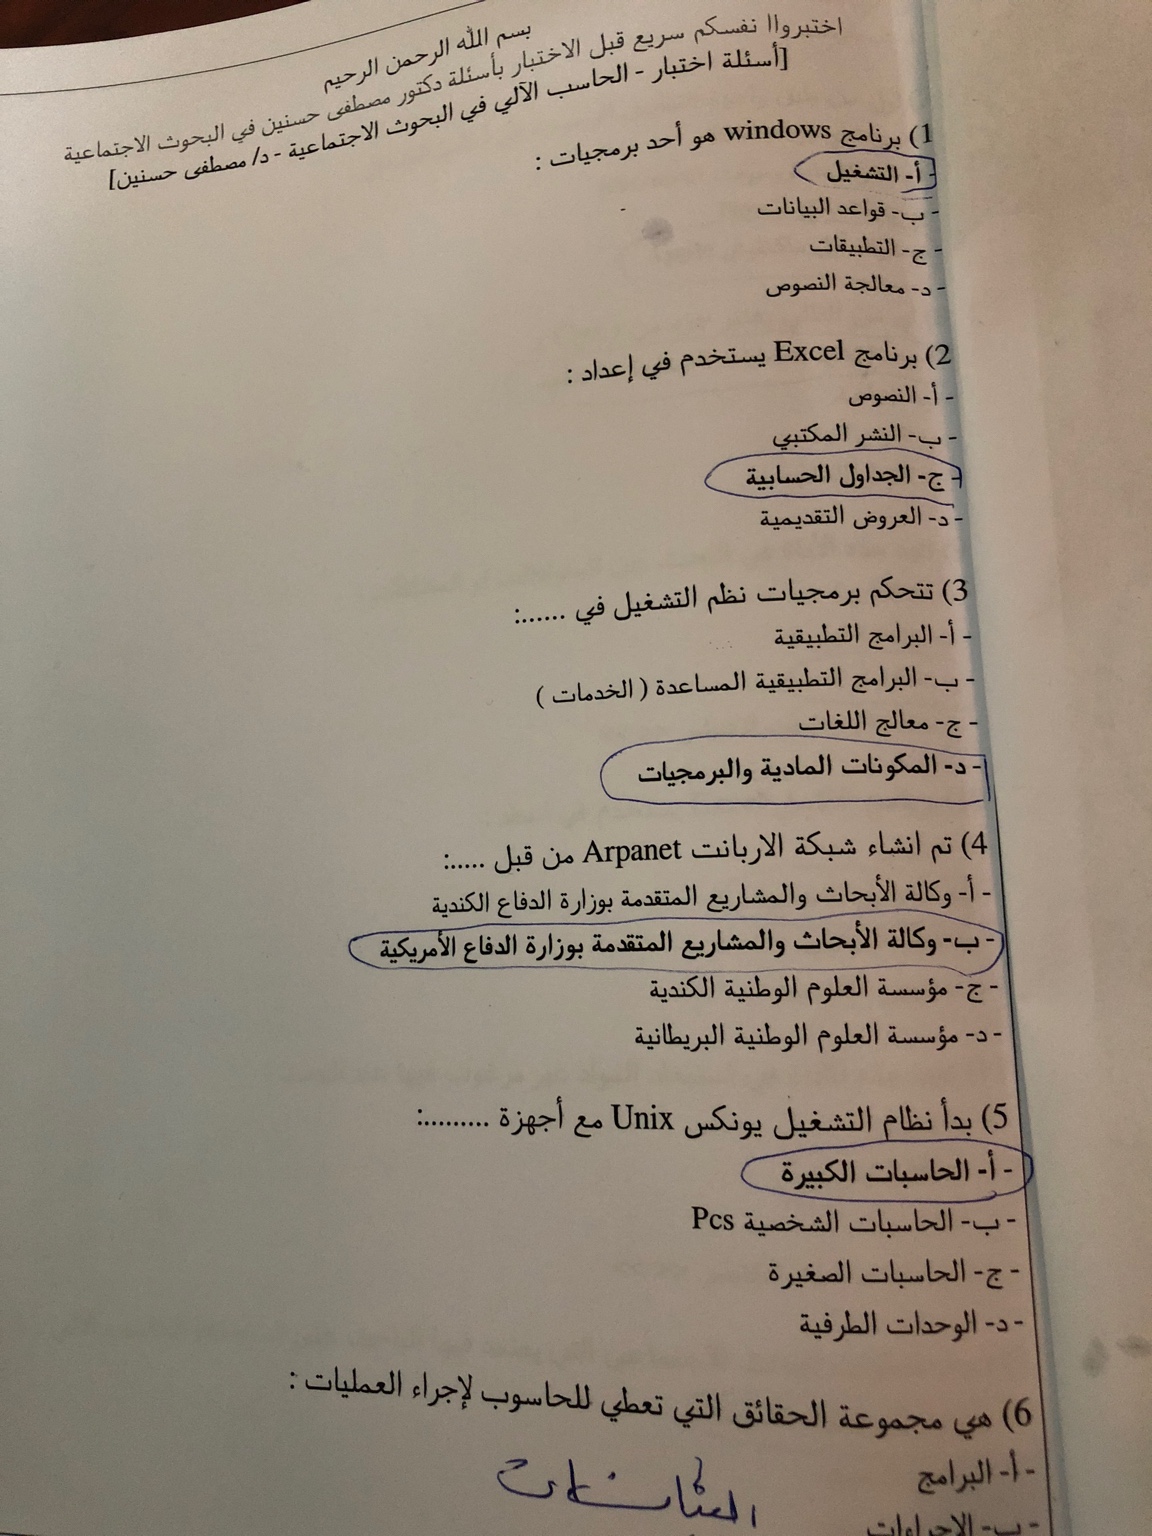 بسم الله الرحمن الرحيم
اختبرواا نفسكم سريع قبل الاختبار بأسئلة دكتور مصطفى حسنين في البحوث الاجتماعية
[أسئلة اختبار - الحاسب الآلي في البحوث الاجتماعية - د/ مصطفى حسنين]
1) برنامج windows هو أحد برمجيات :
- أ- التشغيل
- ب- قواعد البيانات
- ج- التطبيقات
- د- معالجة النصوص
2) برنامج Excel يستخدم في إعداد :
- أ- النصوص
- ب- النشر المكتبي
- ج- الجداول الحسابية
- د- العروض التقديمية
3) تتحكم برمجيات نظم التشغيل في ......:
- أ- البرامج التطبيقية
- ب- البرامج التطبيقية المساعدة ( الخدمات )
- ج- معالج اللغات
- د- المكونات المادية والبرمجيات
4) تم انشاء شبكة الاربانت Arpanet من قبل .....:
- أ- وكالة الأبحاث والمشاريع المتقدمة بوزارة الدفاع الكندية
- ب- وكالة الأبحاث والمشاريع المتقدمة بوزارة الدفاع الأمريكية
- ج- مؤسسة العلوم الوطنية الكندية
- د- مؤسسة العلوم الوطنية البريطانية
5) بدأ نظام التشغيل يونكس Unix مع أجهزة ..........:
- أ- الحاسبات الكبيرة
- ب- الحاسبات الشخصية Pcs
- ج- الحاسبات الصغيرة
- د- الوحدات الطرفية
6) هي مجموعة الحقائق التي تعطي للحاسوب لإجراء العمليات :
- أ- البرامج
- ب- الاجراءات